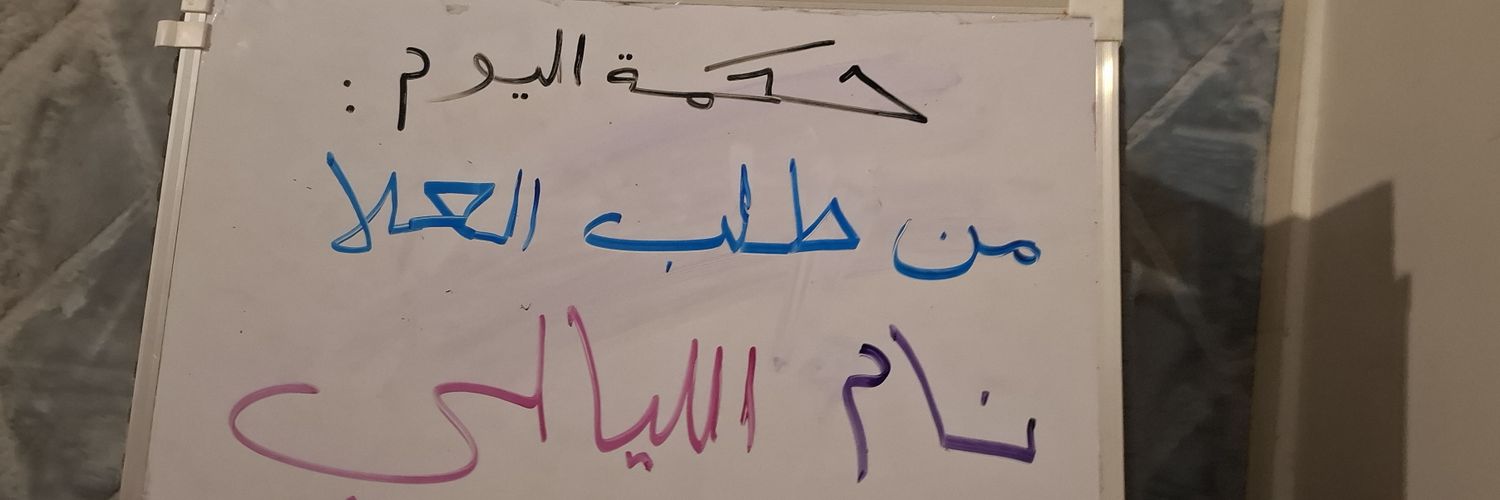 حكمة اليوم :
من طلب العلا
نام الليالي